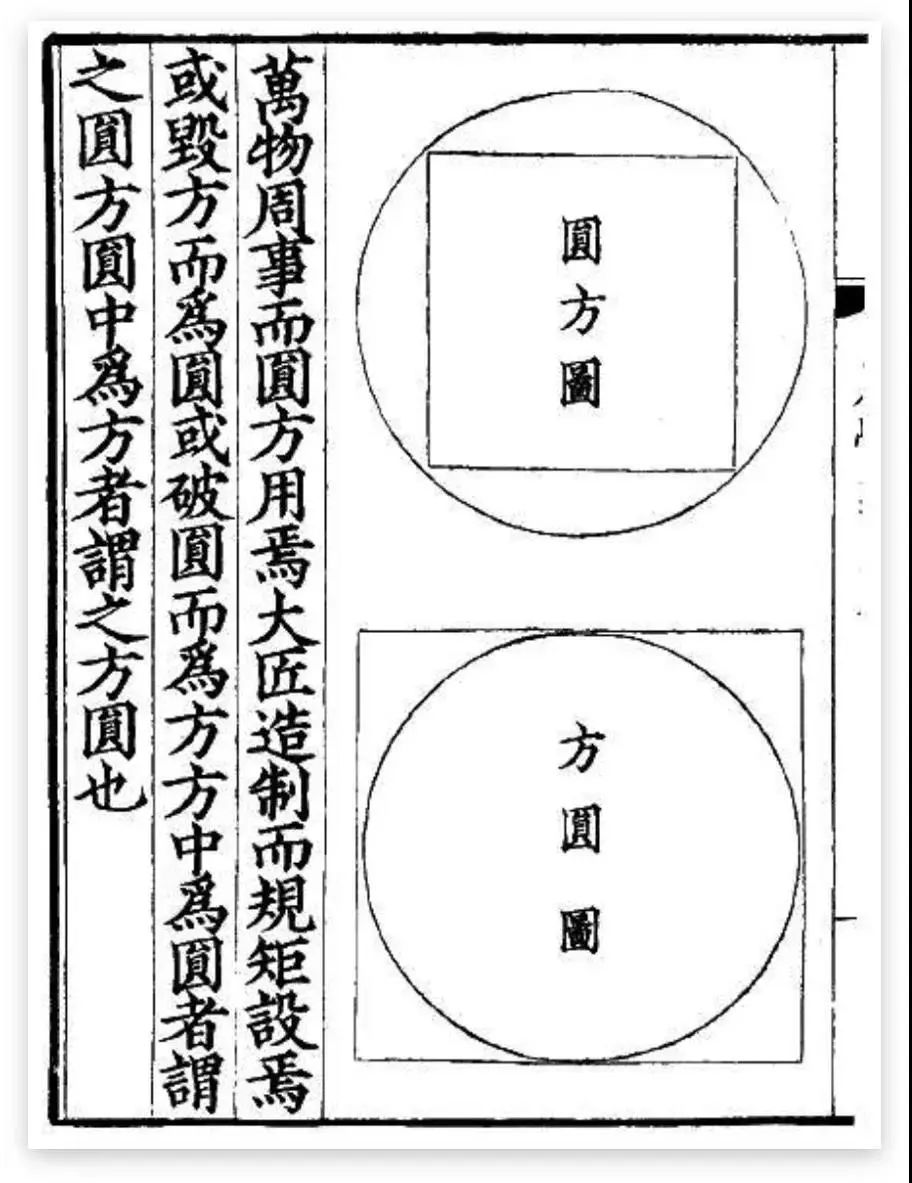 圓方圖
方圓圖
萬物周事而圓方用焉大匠造制而規矩設焉
或毀方而爲圓或破圓而爲方方中爲圓者謂
之圓方圓中爲方者謂之方圓也